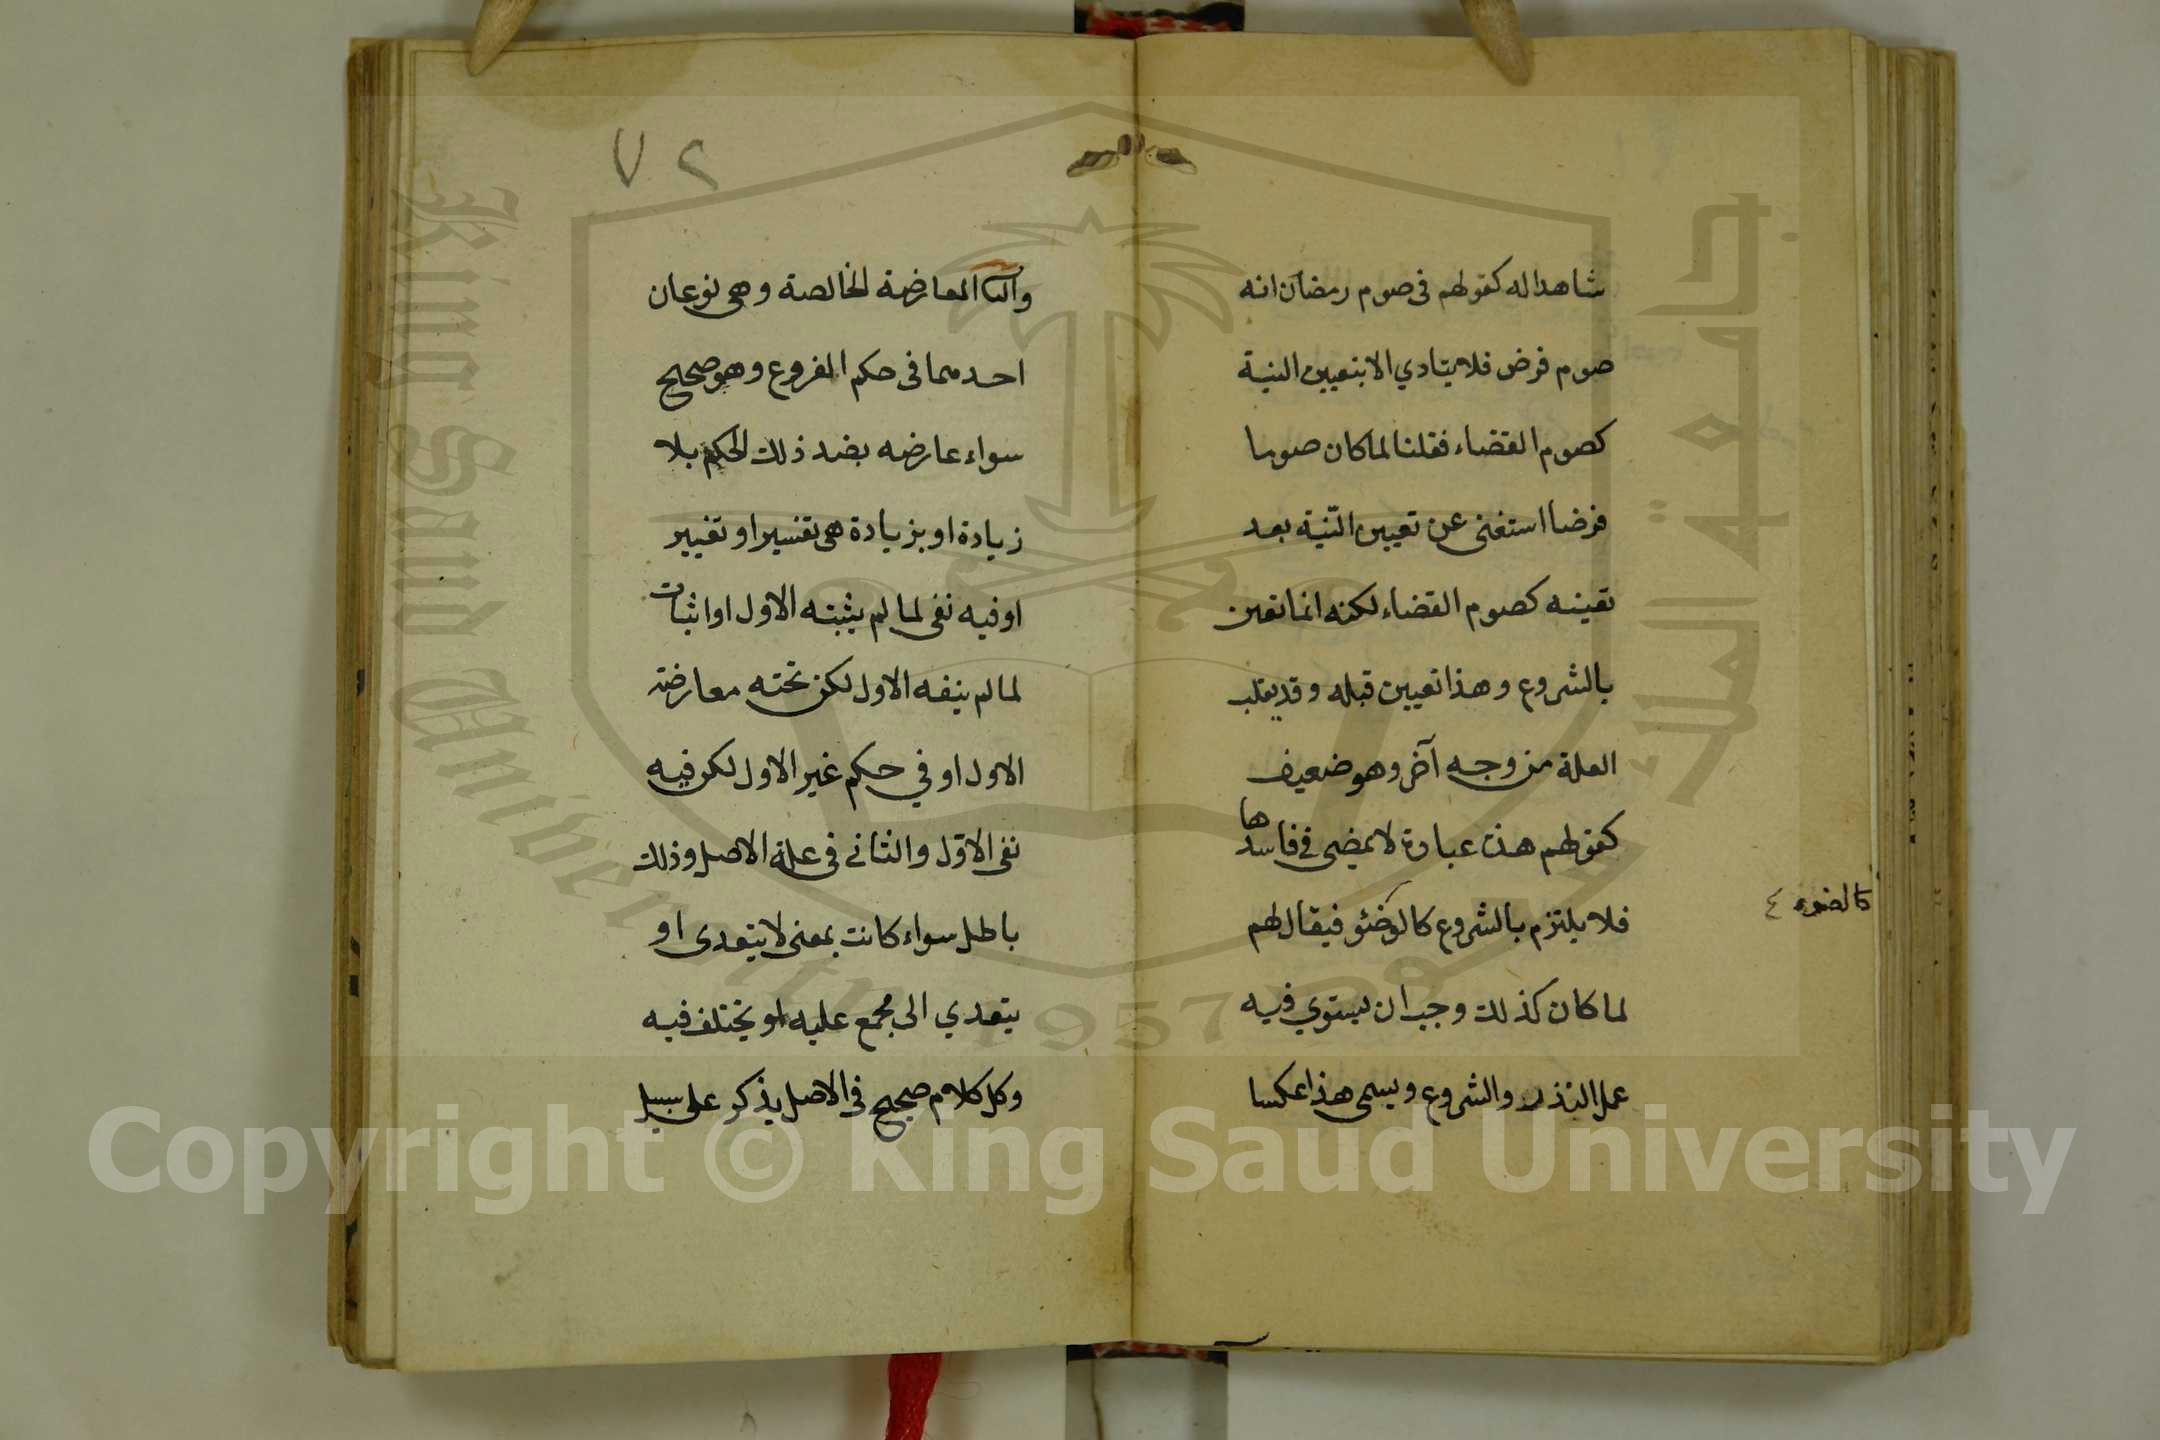 شاهدا له كقولهم في صوم رمضان انه
صوم فرض فلا يتادي الا بتعيين النية
كصوم القضاء فقلنا لما كان صوما
فرضا استغنى عن تعيين النية بعد
تعينه كصوم القضاء لكنه انما تعين
بالشروع وهذا تعيين قبله وقد يقلب
العلة من وجه آخر وهو ضعيف
كقولهم هذه عبادة لا يمضي في فاسدها
فلا يلتزم بالشروع كالوضئو فيقال لهم
كالضوء ٤
لما كان كذلك وجب ان يستوي فيه
عمل النذر والشروع ويسمى هذا عكسا
٧٢
المعارضة الخالصة وهي نوعان
احدهما في حكم الفروع وهو صحيح
سواء عارضه بضد ذلك الحكم بلا
زيادة او بزيادة هي تفسير او تغيير
او فيه نفى لما لم يثبته الاول او اثبات
لما لم ينفه الاول لكن تحته معارضة
الاول او في حكم غير الاول لكن فيه
نفي الاوّل والثاني في علة الاصل وذلك
باطل سواء كانت بمعنى لا يتعدى او
يتعدي الى مجمع عليه او يختلف فيه
وكل كلام صحيح في الاصل يذكر على سبيل
جامعة الملك سعود
King Saud University
1957
Copyright © King Saud University